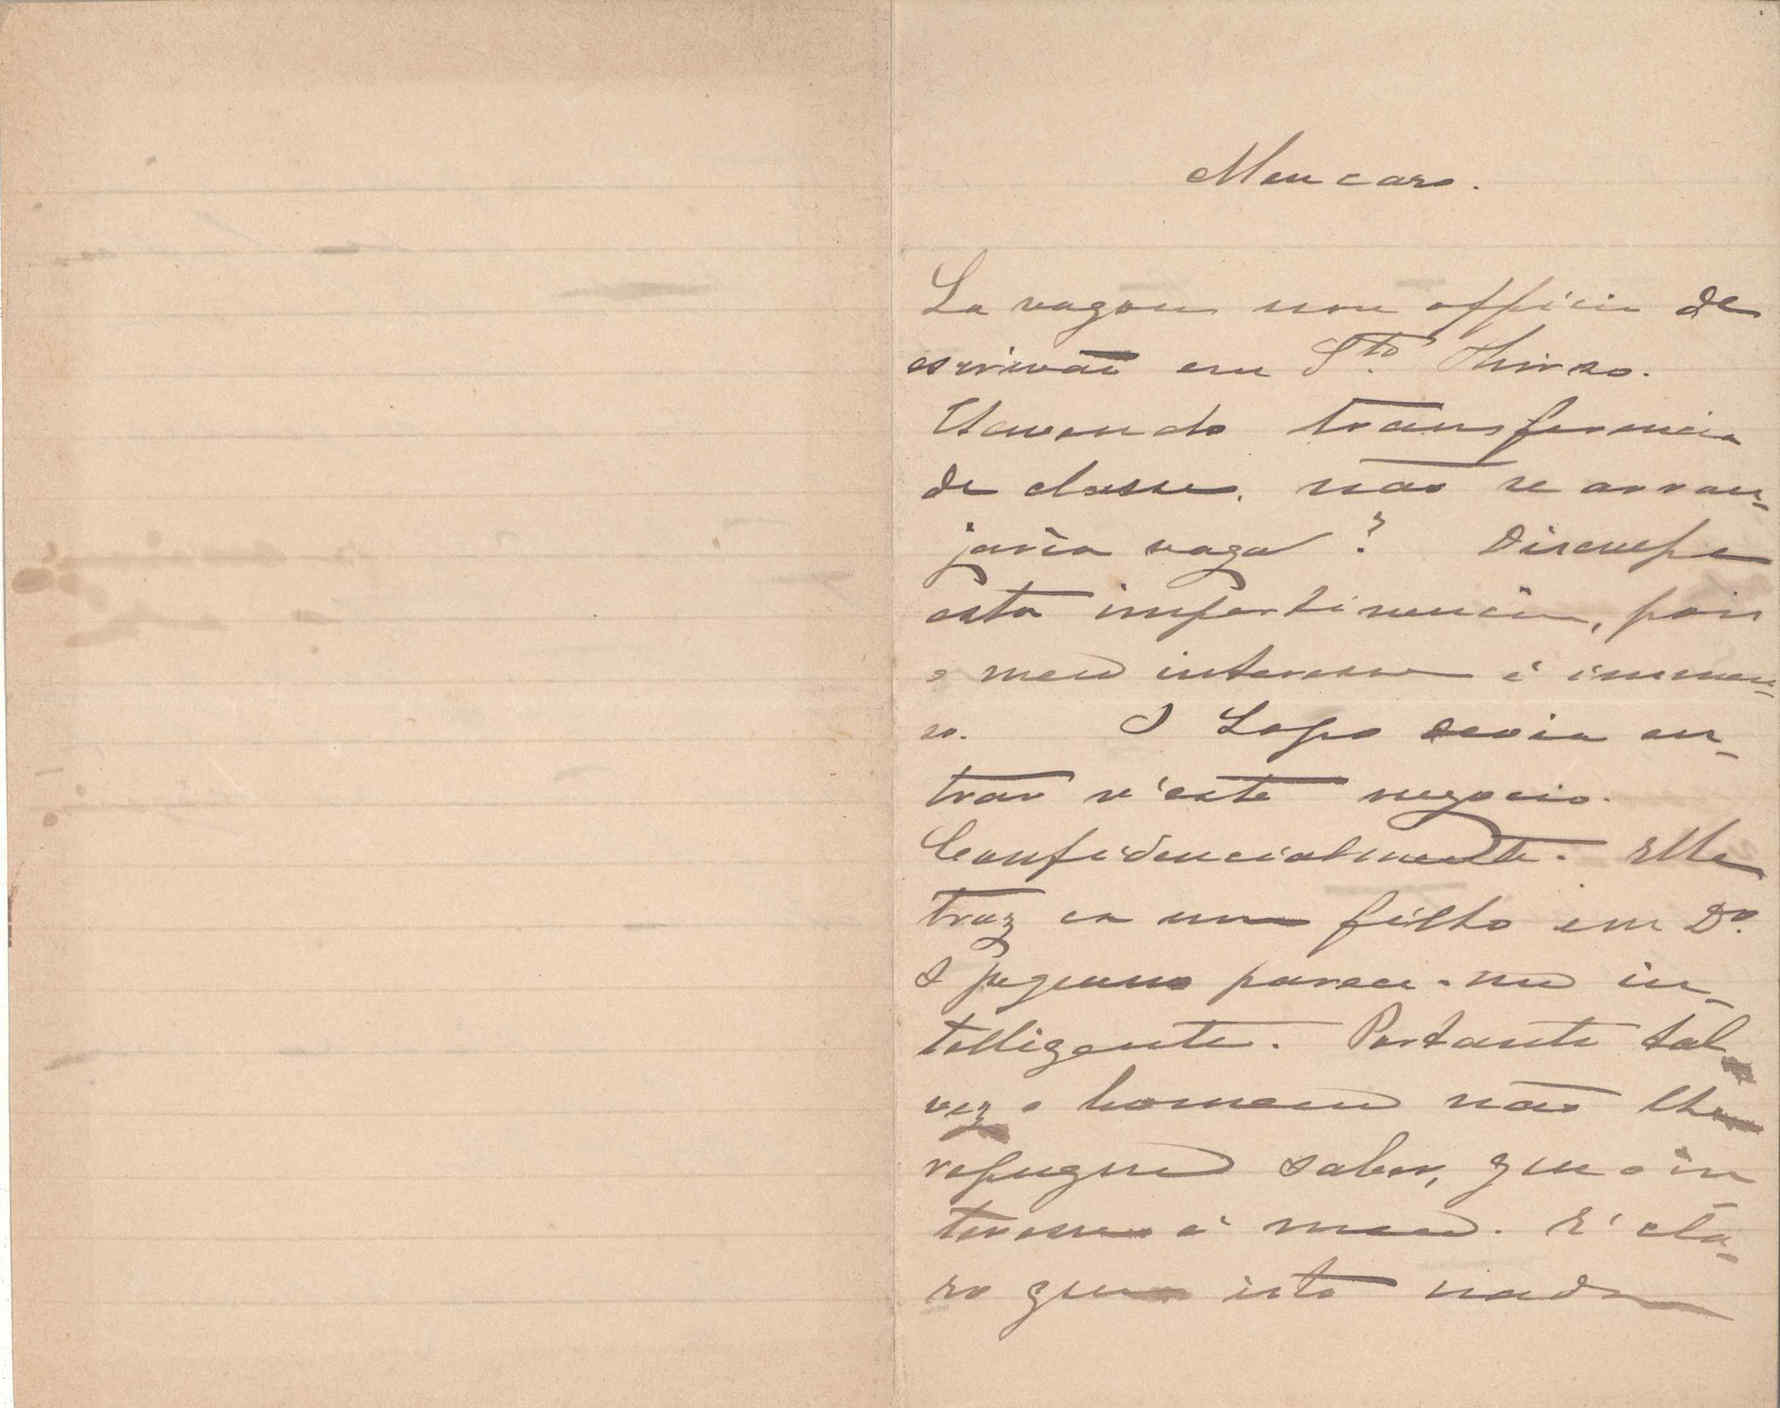 Meu caro.
La vagou um officio de
escrivão em Sto. Thirso.
Havendo transferencia
de classe, não se arran-
jaria vaga? Disculpe
esta impertinencia, pois
o meu interesse é immen-
so. O Lopo devia en-
trar n'este negocio.
Confidencialmente. Elle
traz ca um filho em Do.
O pequeno parece-me in-
telligente. Portanto tal-
vez o homem não lhe
repugne saber, que o in
teresse é meu. E' cla-
ro que isto nada